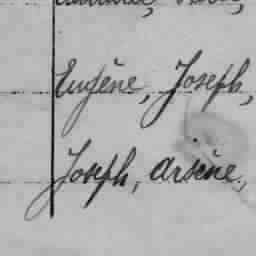 Eugène, Joseph,
Joseph, Arsène,